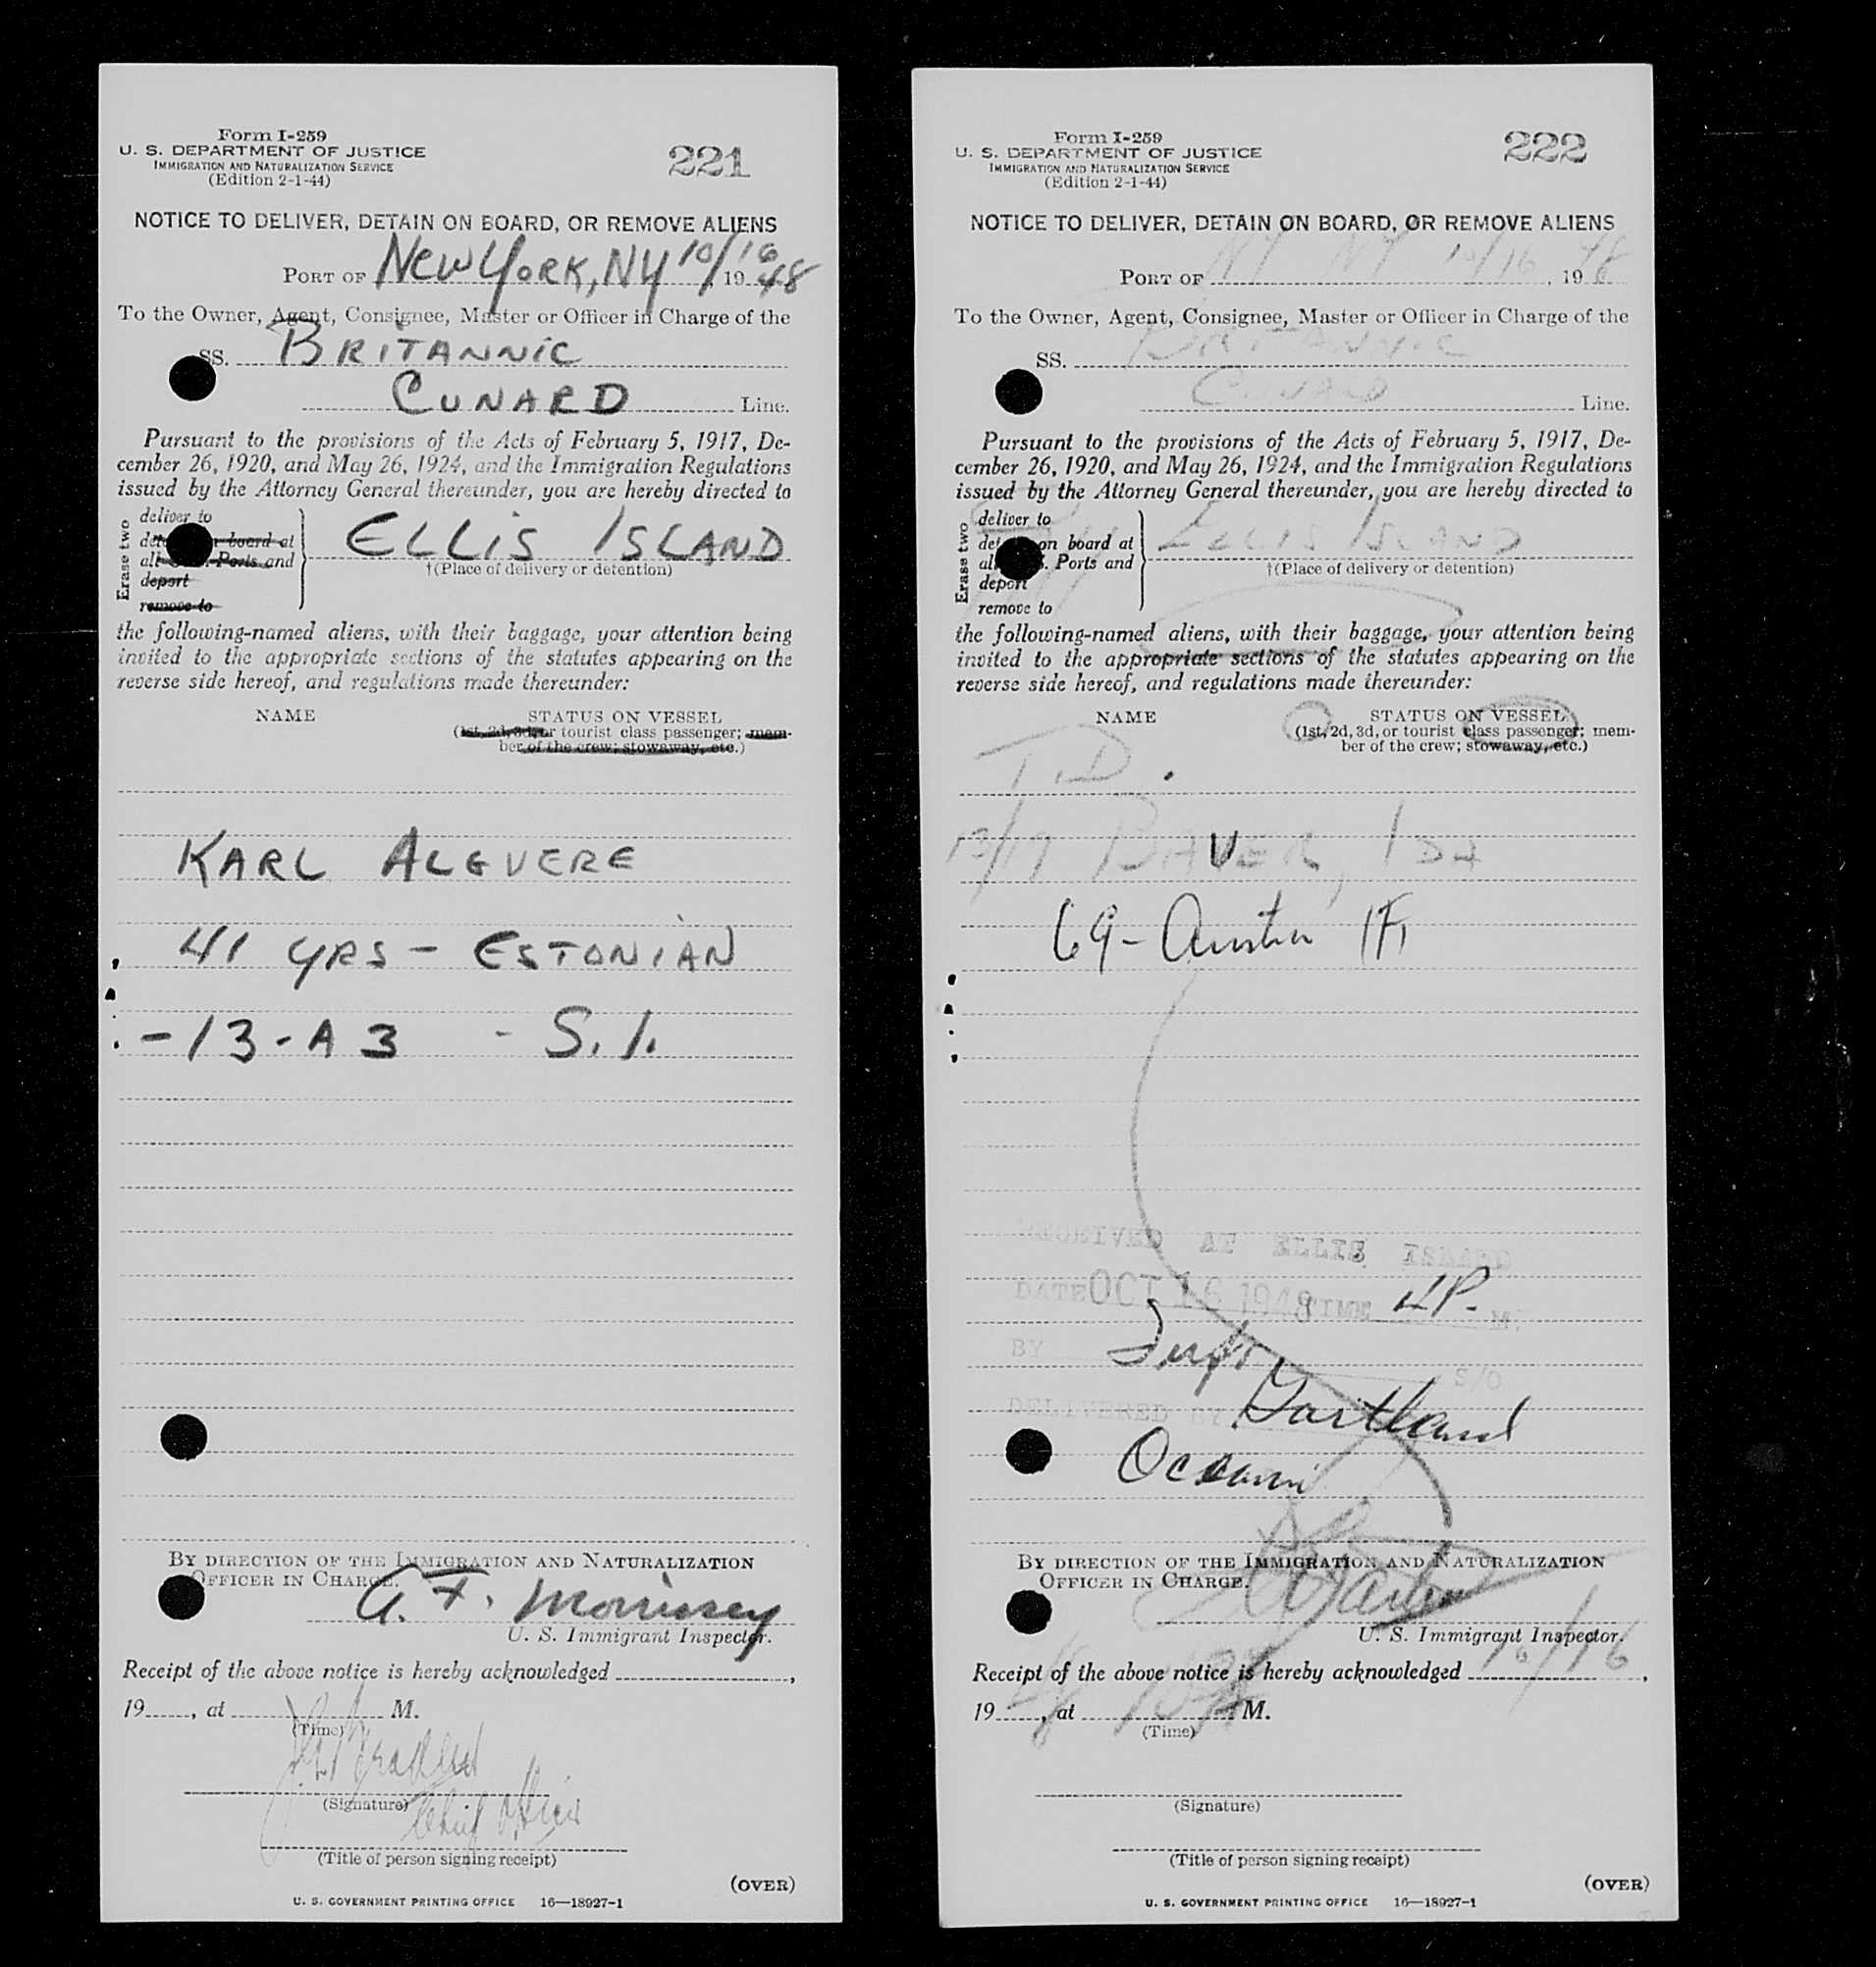 Form I-259
U. S. DEPARTMENT OF JUSTICE
IMMIGRATION AND NATURALIZATION SERVICE
(Edition 2-1-44)
221
NOTICE TO DELIVER, DETAIN ON BOARD, OR REMOVE ALIENS
PORT OF NEW YORK, NY 10/16, 1948
To the Owner, Agent, Consignee, Master or Officer in Charge of the
SS. BRITANNIC
CUNARD Line.
Pursuant to the provisions of the Acts of February 5, 1917, De-
cember 26, 1920, and May 26, 1924, and the Immigration Regulations
issued by the Attorney General thereunder, you are hereby directed to
Erase two
deliver to
board at
Ports and
deport
remove to
ELLIS ISLAND
†(Place of delivery or detention)
the following-named aliens, with their baggage, your attention being
invited to the appropriate sections of the statutes appearing on the
reverse side hereof, and regulations made thereunder:
NAME STATUS ON VESSEL
(1st, 2d, 3d, or tourist class passenger; mem-
ber of the crew; stowaway, etc.)
KARL ALGVERE
41 YRS - ESTONIAN
-13-A3 - S.I.
BY DIRECTION OF THE IMMIGRATION AND NATURALIZATION
OFFICER IN CHARGE.
A. F. Morrissey
U. S. Immigrant Inspector.
Receipt of the above notice is hereby acknowledged ,
19 , at M.
(Time)
(Signature)
Chief Officer
(Title of person signing receipt)
(OVER)
U. S. GOVERNMENT PRINTING OFFICE 16—18927-1
Form I-259
U. S. DEPARTMENT OF JUSTICE
IMMIGRATION AND NATURALIZATION SERVICE
(Edition 2-1-44)
222
NOTICE TO DELIVER, DETAIN ON BOARD, OR REMOVE ALIENS
PORT OF NY NY 10/16, 1948
To the Owner, Agent, Consignee, Master or Officer in Charge of the
SS. BRITANNIC
CUNARD Line.
Pursuant to the provisions of the Acts of February 5, 1917, De-
cember 26, 1920, and May 26, 1924, and the Immigration Regulations
issued by the Attorney General thereunder, you are hereby directed to
Erase two
deliver to
on board at
Ports and
deport
remove to
ELLIS ISLAND
†(Place of delivery or detention)
the following-named aliens, with their baggage, your attention being
invited to the appropriate sections of the statutes appearing on the
reverse side hereof, and regulations made thereunder:
NAME STATUS ON VESSEL
(1st, 2d, 3d, or tourist class passenger; mem-
ber of the crew; stowaway, etc.)
T.D.
BAUER, IDA
69 - Austria 1F
RECEIVED AT ELLIS ISLAND
DATE OCT 16 1948 TIME 4P. M.
BY S/O
DELIVERED BY Gartland
BY DIRECTION OF THE IMMIGRATION AND NATURALIZATION
OFFICER IN CHARGE.
U. S. Immigrant Inspector.
Receipt of the above notice is hereby acknowledged 10/16,
19 , at M.
(Time)
(Signature)
(Title of person signing receipt)
(OVER)
U. S. GOVERNMENT PRINTING OFFICE 16—18927-1